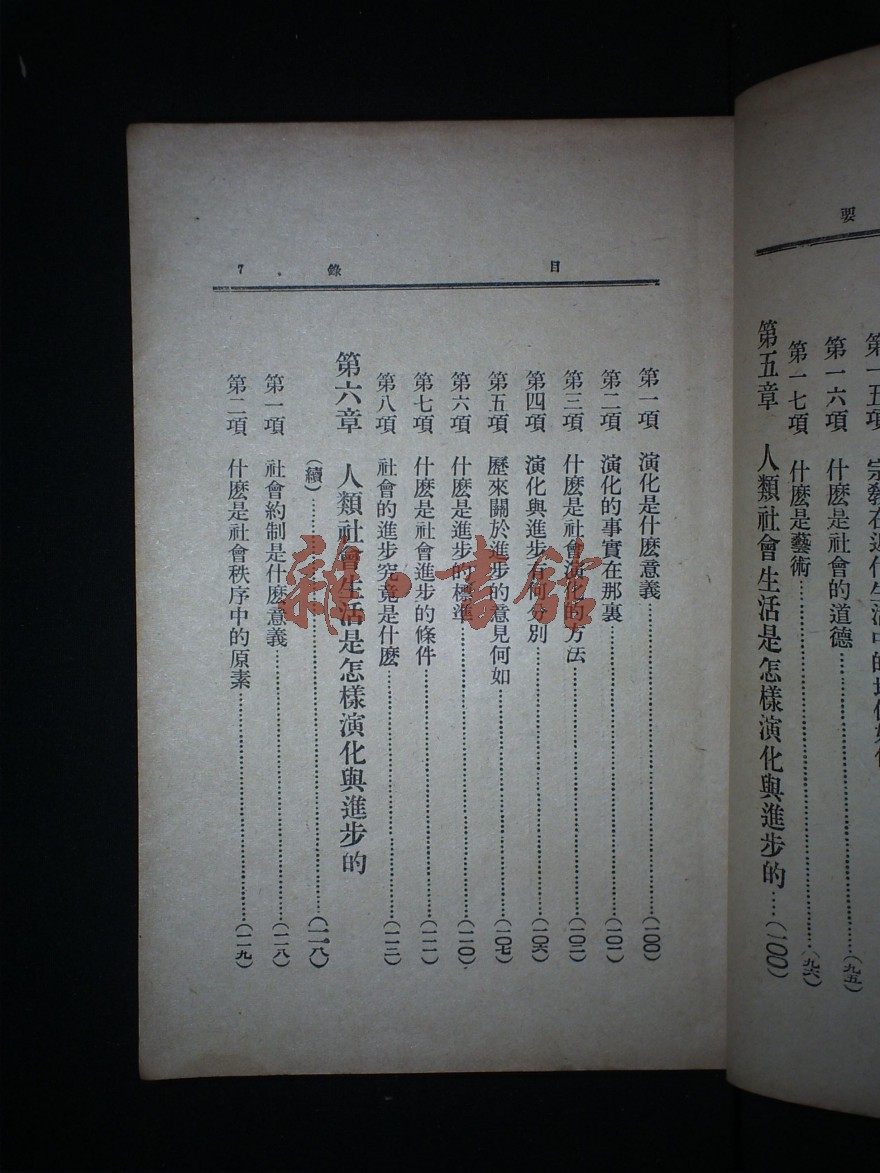 要
第一五項 宗教在近代生活中的地位如何
第一六項 什麽是社會的道德……(九五)
第一七項 什麽是藝術……(九六)
第五章 人類社會生活是怎樣演化與進步的……(一〇〇)
目 錄 7
第一項 演化是什麽意義……(一〇〇)
第二項 演化的事實在那裏……(一〇一)
第三項 什麽是社會演化的方法……(一〇二)
第四項 演化與進步有何分別……(一〇六)
第五項 歷來關於進步的意見何如……(一〇七)
第六項 什麽是進步的標準……(一一〇)
第七項 什麽是社會進步的條件……(一一一)
第八項 社會的進步究竟是什麽……(一一三)
第六章 人類社會生活是怎樣演化與進步的
(續)……(一一八)
第一項 社會約制是什麽意義……(一一八)
第二項 什麽是社會秩序中的原素……(一一九)
雜書館